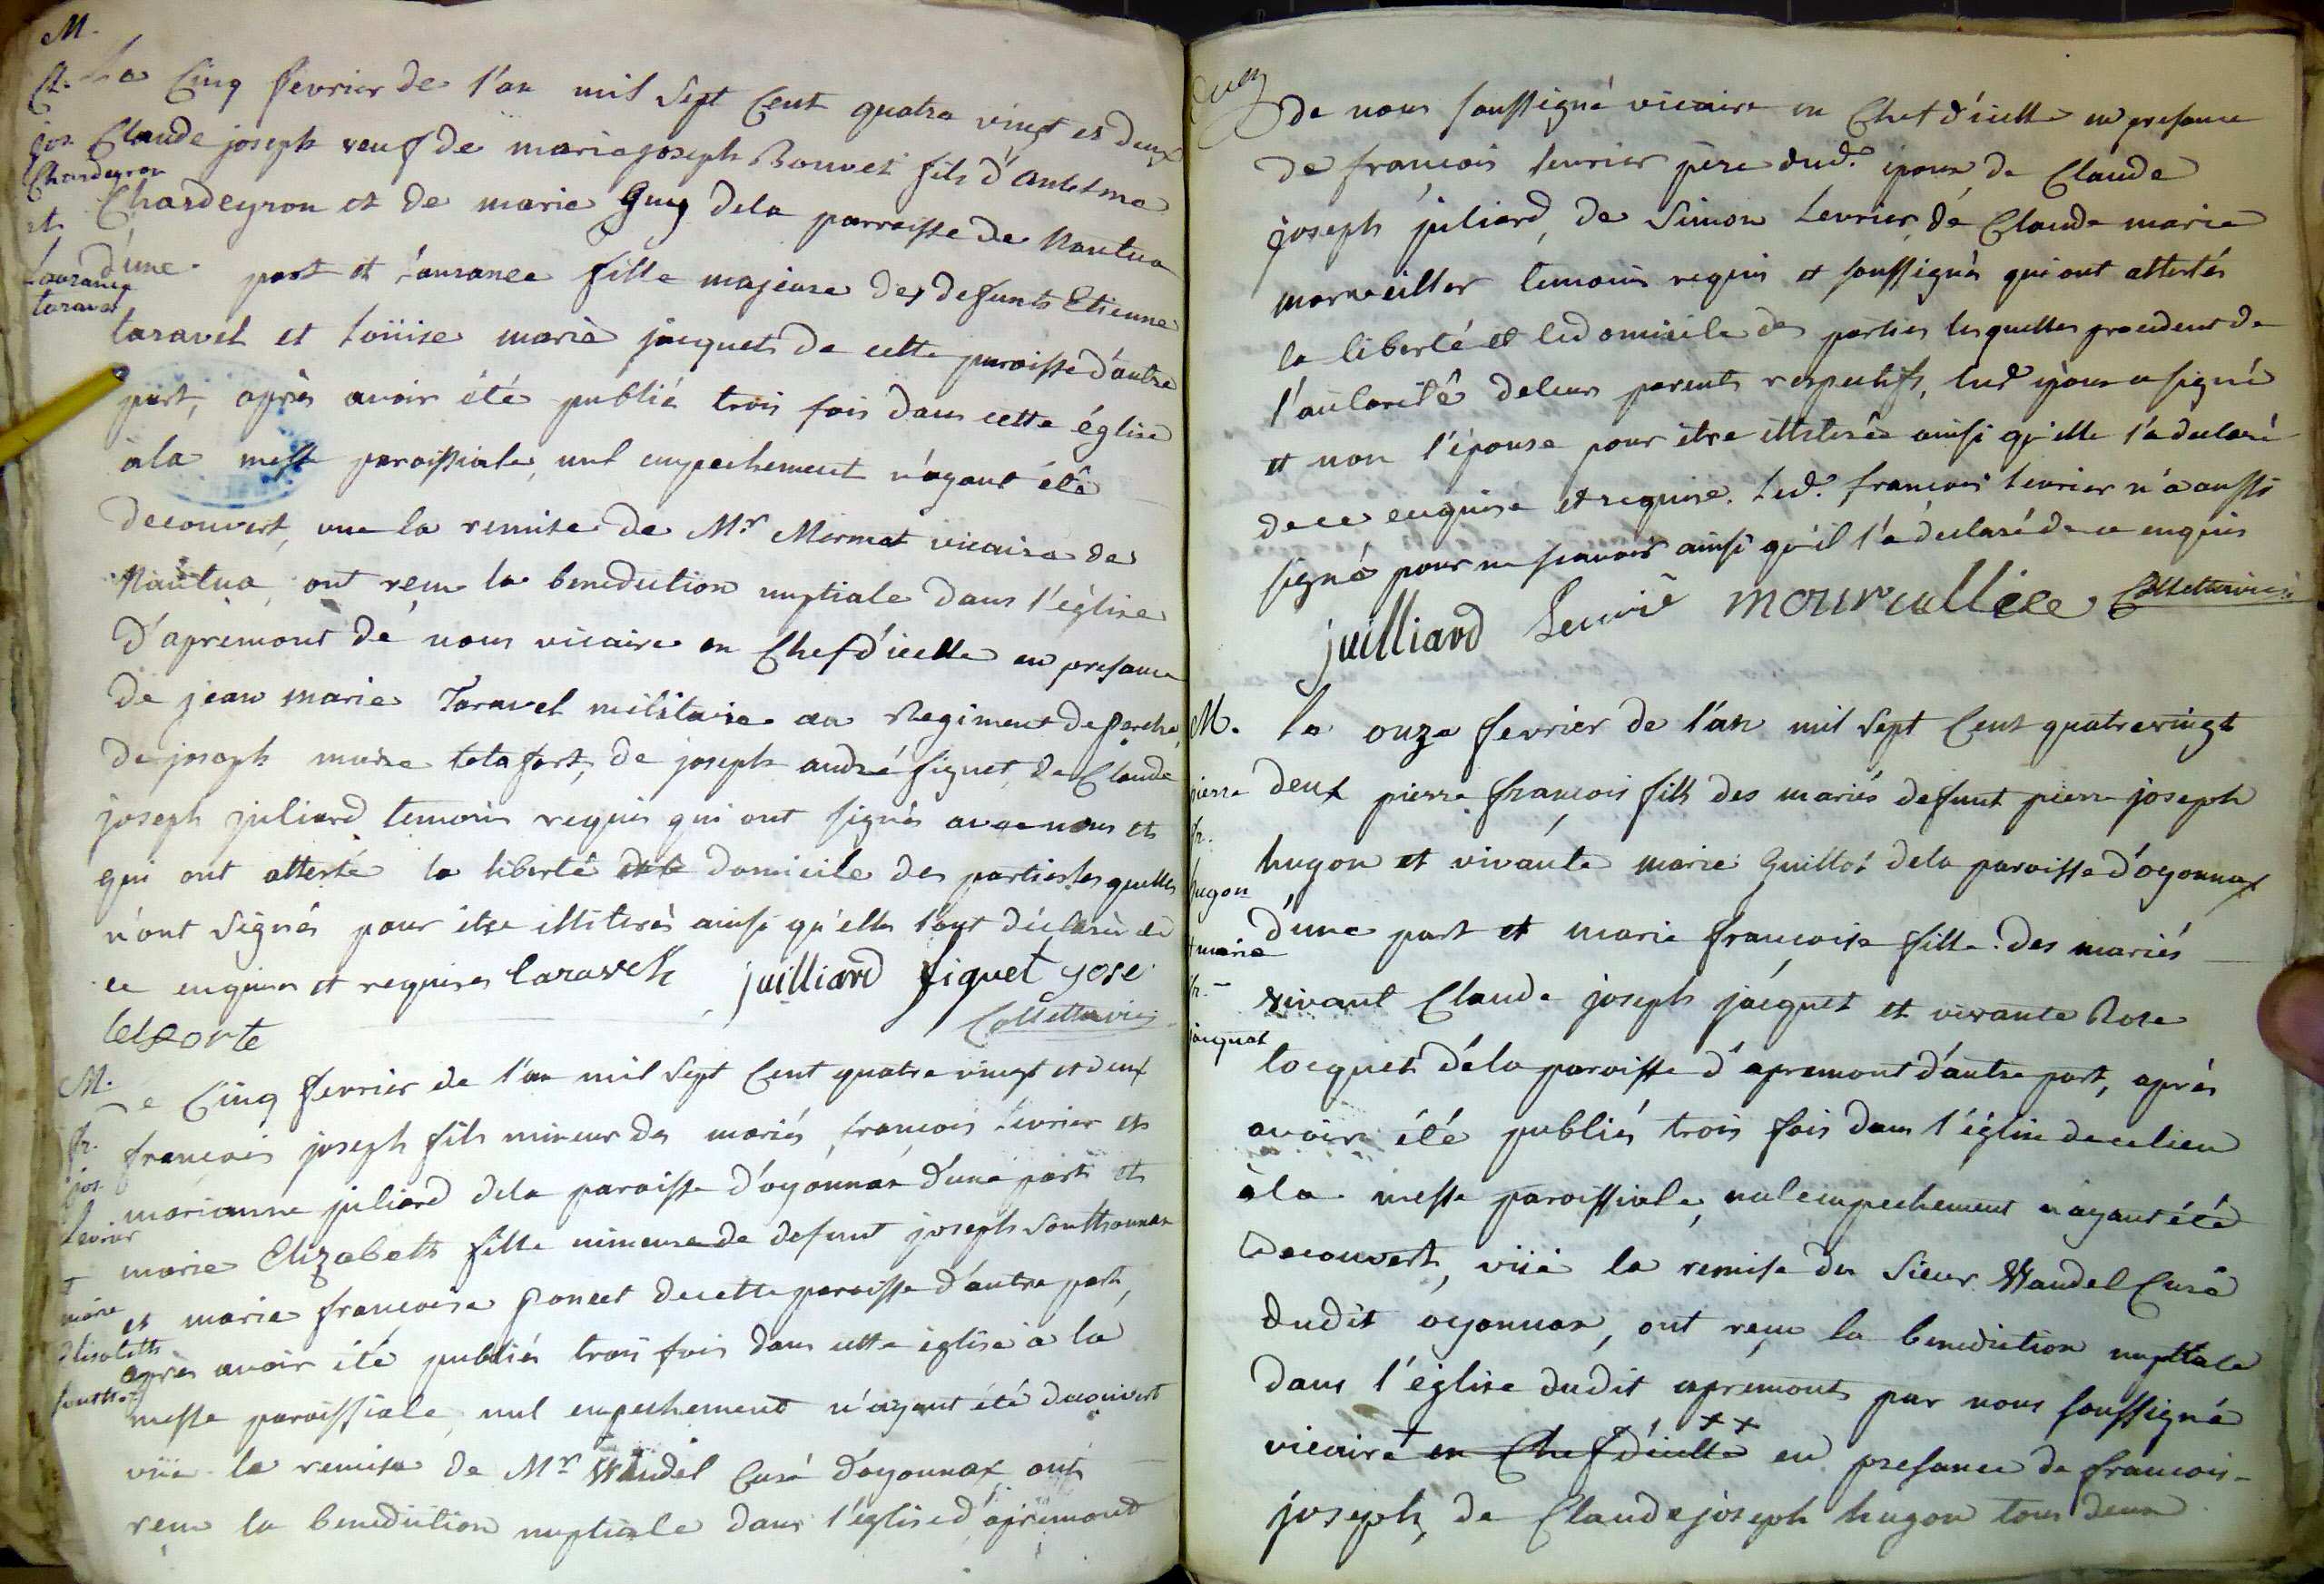 M.
Cl.
jos
Chardeyron
et
Lausance
taravel
Le Cinq fevrier de l'an mil Sept Cent quatre vingt et deux
Claude joseph veuf de marie joseph Bouvet fils d'Antelme
Chardeyron et de marie Guy dela parroisse de Nantua
d'une part et Lausance fille majeure des defunts Etienne
taravel et Loüise marie jacquet de cette paroisse d'autre
part, après avoir été publié trois fois dans cette église
àla messe paroissiale, nul empechement n'ayant été
decouvert, vue la remise de Mr Mermet vicaire de
Nantua, ont reçu la benediction nuptiale dans l'église
d'apremont de nous vicaire en Chef d'icelle en presance
de jean marie Taravel militaire au Regiment de perche,
de joseph marie tela fort, de joseph andré figuet, de Claude
joseph juliard temoins requis qui ont signés avec nous et
qui ont attesté la liberté et le domicile des parties les quelles
n'ont signés pour être illiterés ainsi qu'elles l'ont déclaré de
ce enquises et requises taravel juilliard figuet yose
lelsorte Collet vic.
M.
fr.
jos.
Levrier
et
marie
elisabeth
southo
Le Cinq fevrier de l'an mil Sept Cent quatre vingt et deux
françois joseph fils mineur des mariés francois Levrier et
marianne juliard dela paroisse d'oyonnax d'une part et
marie Elizabeth fille mineure de defunt joseph Southonnax
et marie francoise poncet de cette paroisse d'autre part,
après avoir été publiés trois fois dans cette église à la
messe paroissiale, nul empechement n'ayant été decouvert
vüe la remise de Mr Wandel Curé d'oyonnax, ont
reçu la benediction nuptiale dans l'église d'apremont
de nous soussigné vicaire en Chef d'icelle en presance
de francois levrier père dud. epoux de Claude
joseph juliard, de Simon Levrier, de Claude marie
mermeillier temoins requis et soussignés qui ont attestés
la liberté et le domicile des parties lesquelles procedent de
l'autorité de leurs parents respectifs, led epoux a signé
et non l'épouse pour être illiterée ainsi qu'elle l'a declaré
de ce enquise et requise. Led. francois levrier n'a aussi
signé pour ne scavoir ainsi qu'il l'a déclaré de ce enquis
juilliard Levrié Collet vic.
M.
pierre
fr.
hugon
et marie
fr.
jacquet
Le onze fevrier de l'an mil Sept Cent quatrevingt
deux pierre francois fils des mariés defunt pierre joseph
hugon et vivante marie Guillot dela paroisse d'oyonnax
d'une part et marie francoise fille des mariés
vivant Claude joseph jacquet et vivante Rose
locquet dela paroisse d'apremont d'autre part, après
avoir été publiés trois fois dans l'église de ce lieu
àla messe paroissiale, nul empechement n'ayant été
decouvert, vüe la remise du Sieur Wandel Curé
dudit oyonnax, ont reçu la benediction nuptiale
dans l'église dudit apremont par nous soussigné
vicaire en Chef d'icelle ++ en presance de francois-
joseph, de Claude joseph hugon tous deux